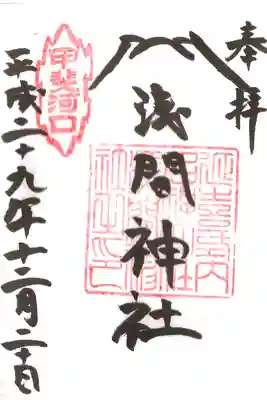 奉拝
浅間神社
甲斐河口
平成二十九年十二月二十日